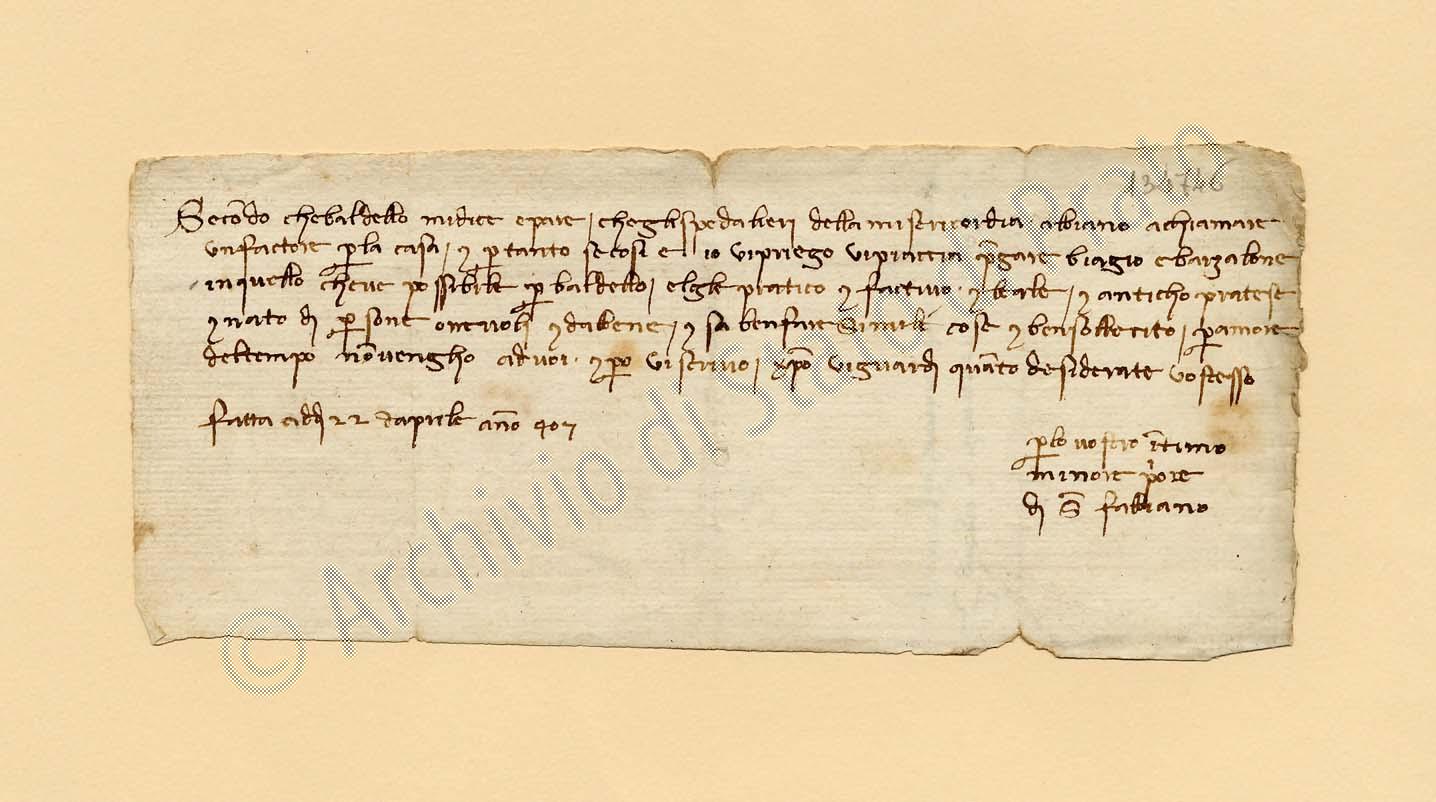 134746
Secōdo che baldello mi dice e pare / che gli spedalieri della misericordia abiano a chiamare
un factore p la casa / ⁊ p tanto se cosi e io vi priego vi piaccia pgare biagio e barzalone
in quello che ve possibile p baldello / elgle pratico ⁊ factivo ⁊ leale / ⁊ anticho pratese
⁊ nato di psone onevoli ⁊ da bene / ⁊ sa ben fare simile cose ⁊ ben sollecito / p amore
del tempo nō vengho ad voi ⁊ po vi scrivo / xp̄o vi guardi quāto desiderate vo stesso
fatta adi 22 daprile āno 407
p lo vostro ītimo
minore pore
di S̄ fabiano
© Archivio di Stato di Prato